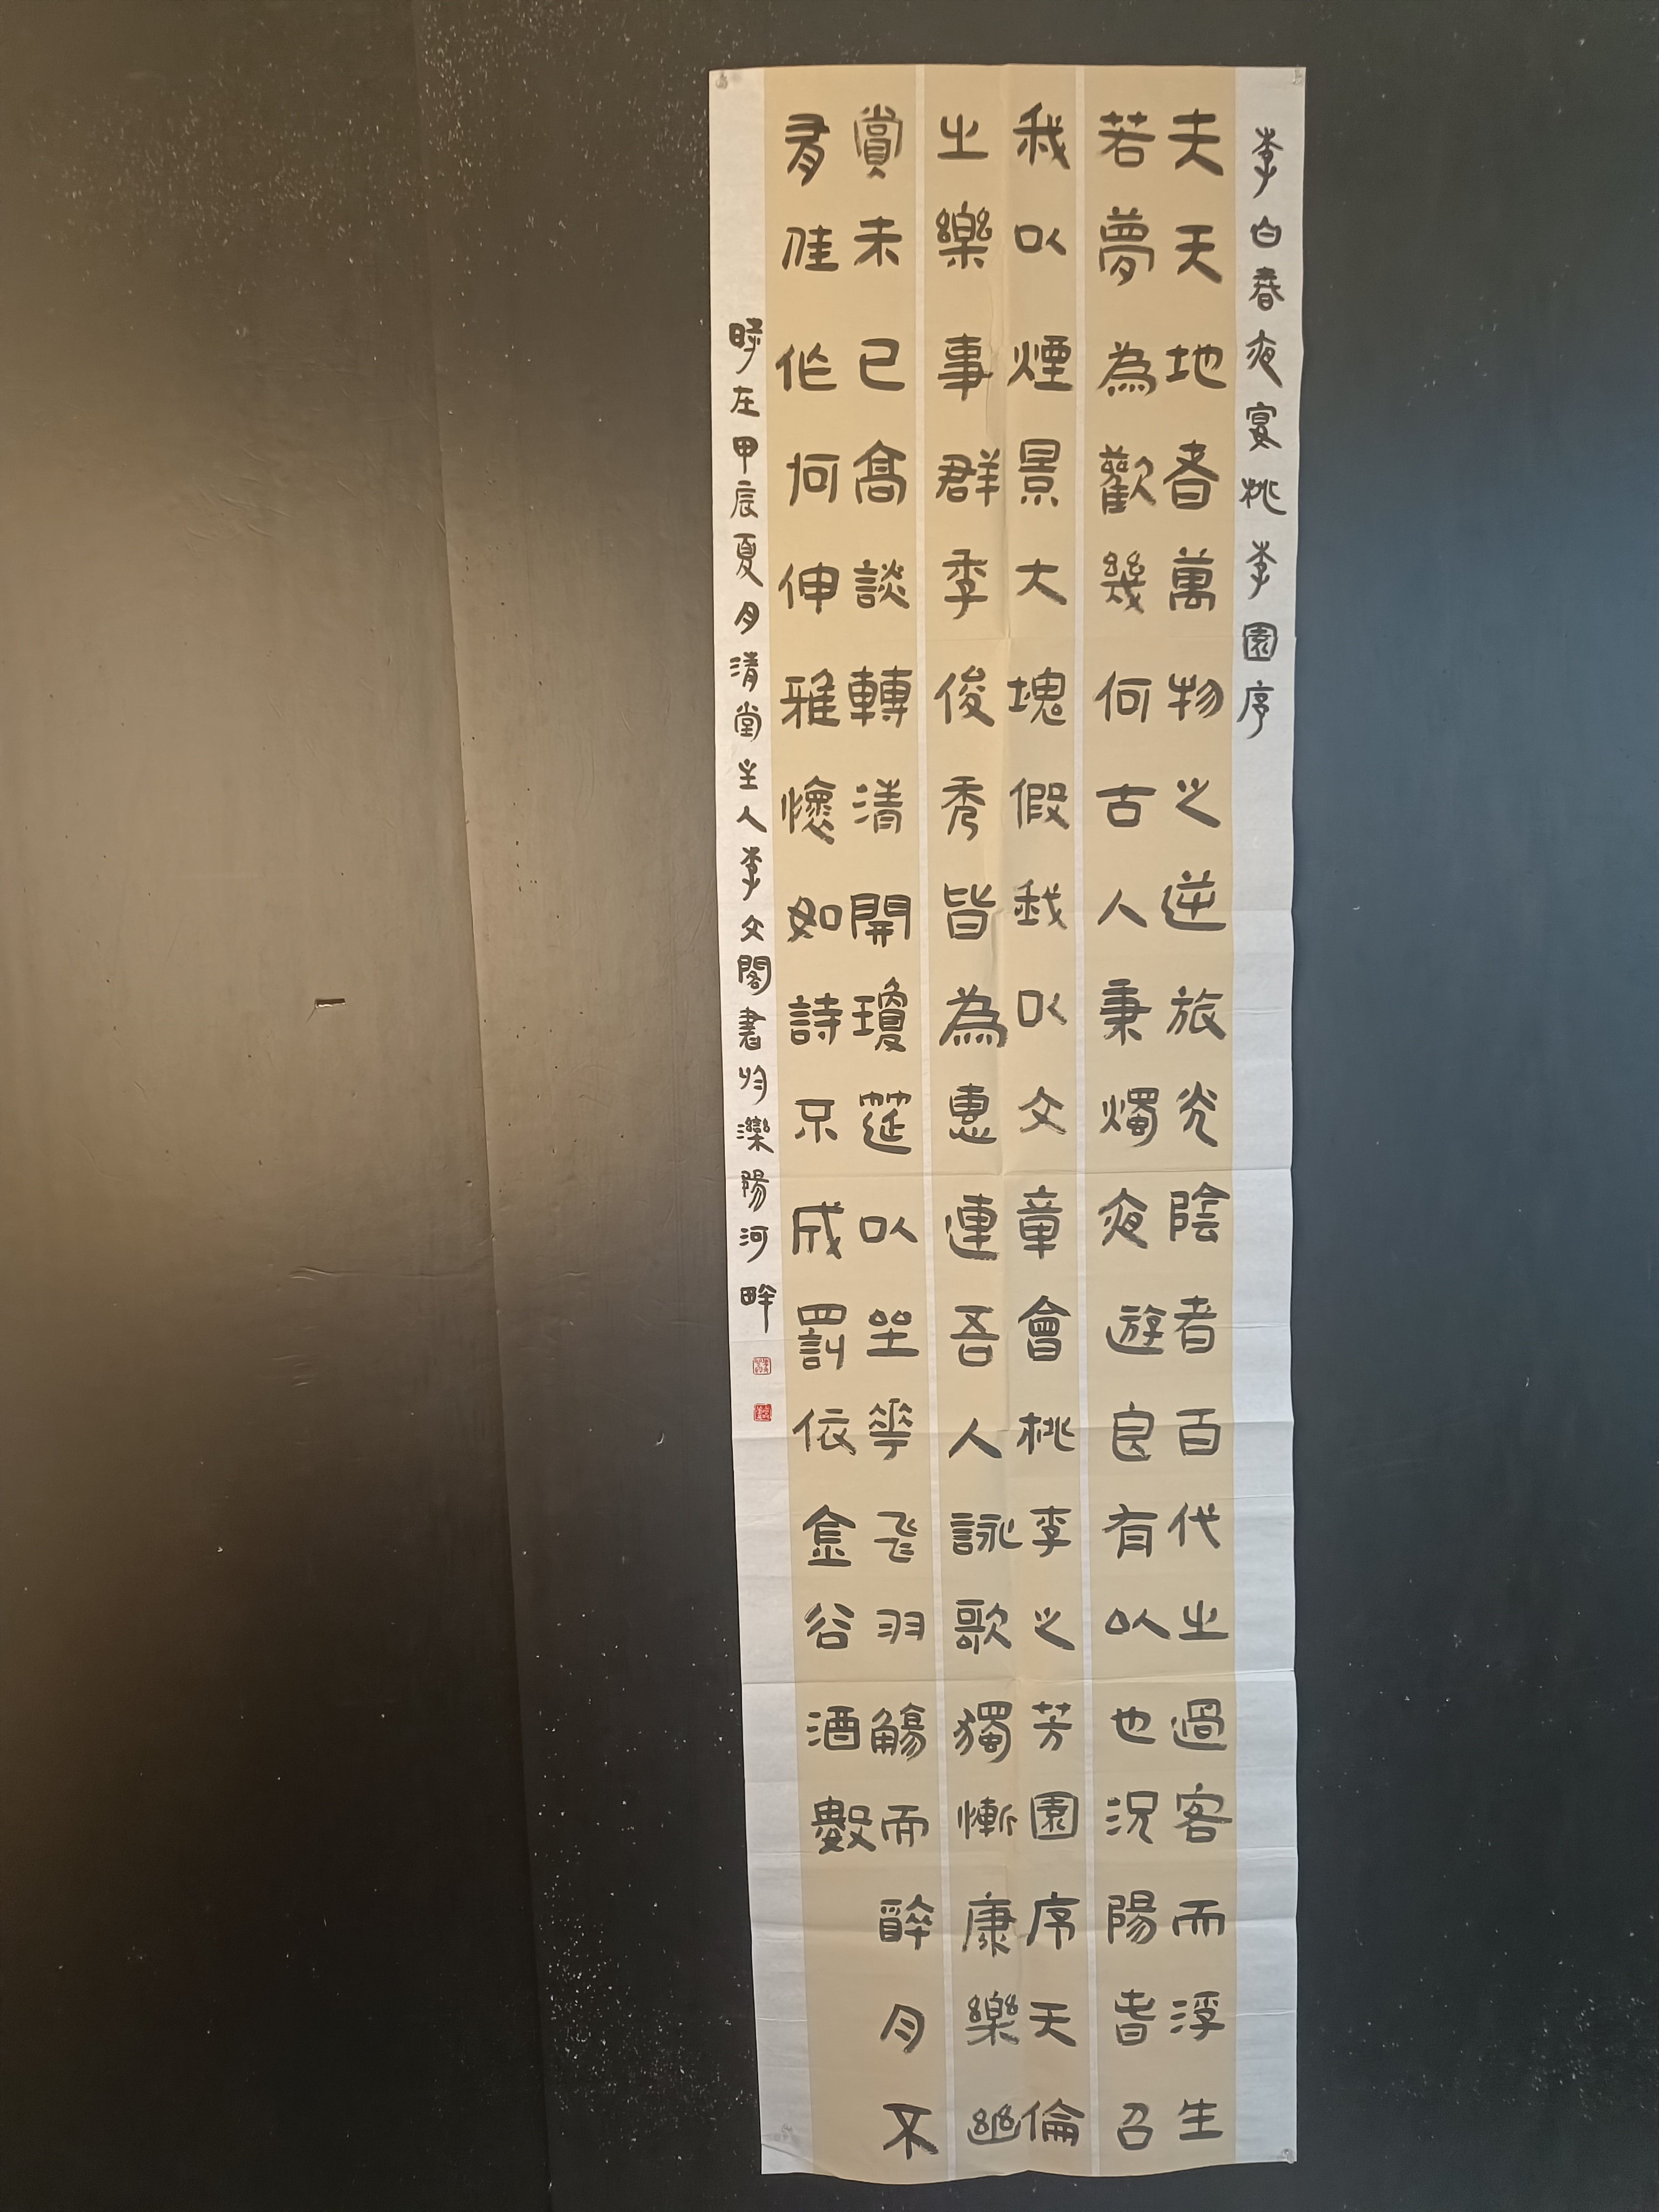 李白春夜宴桃李園序
夫天地者萬物之逆旅光陰者百代之過客而浮生
若夢為歡幾何古人秉燭夜遊良有以也況陽春召
我以煙景大塊假我以文章會桃李之芳園序天倫
之樂事群季俊秀皆為惠連吾人詠歌獨慚康樂幽
賞未已高談轉清開瓊筵以坐花飞羽觴而醉月不
有佳作何伸雅懷如詩不成罰依金谷酒數
時在甲辰夏月清堂主人李文閣書於灤陽河畔